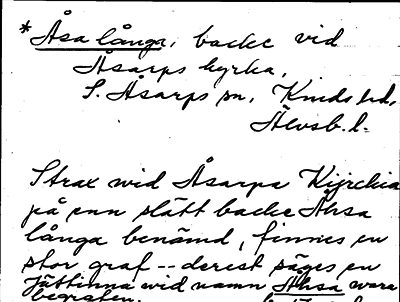 * Åsa långa, backe vid
Åsarps kyrka,
S. Åsarps sn, Kinds hd,
Älvsb. l.
Strax wid Åsarps Kijrckia
på enn slätt backe Åhsa
långa benämd, finnes en
stor graf -- derest säges en
Jättinna wid namn Åhsa wara
begrafen.